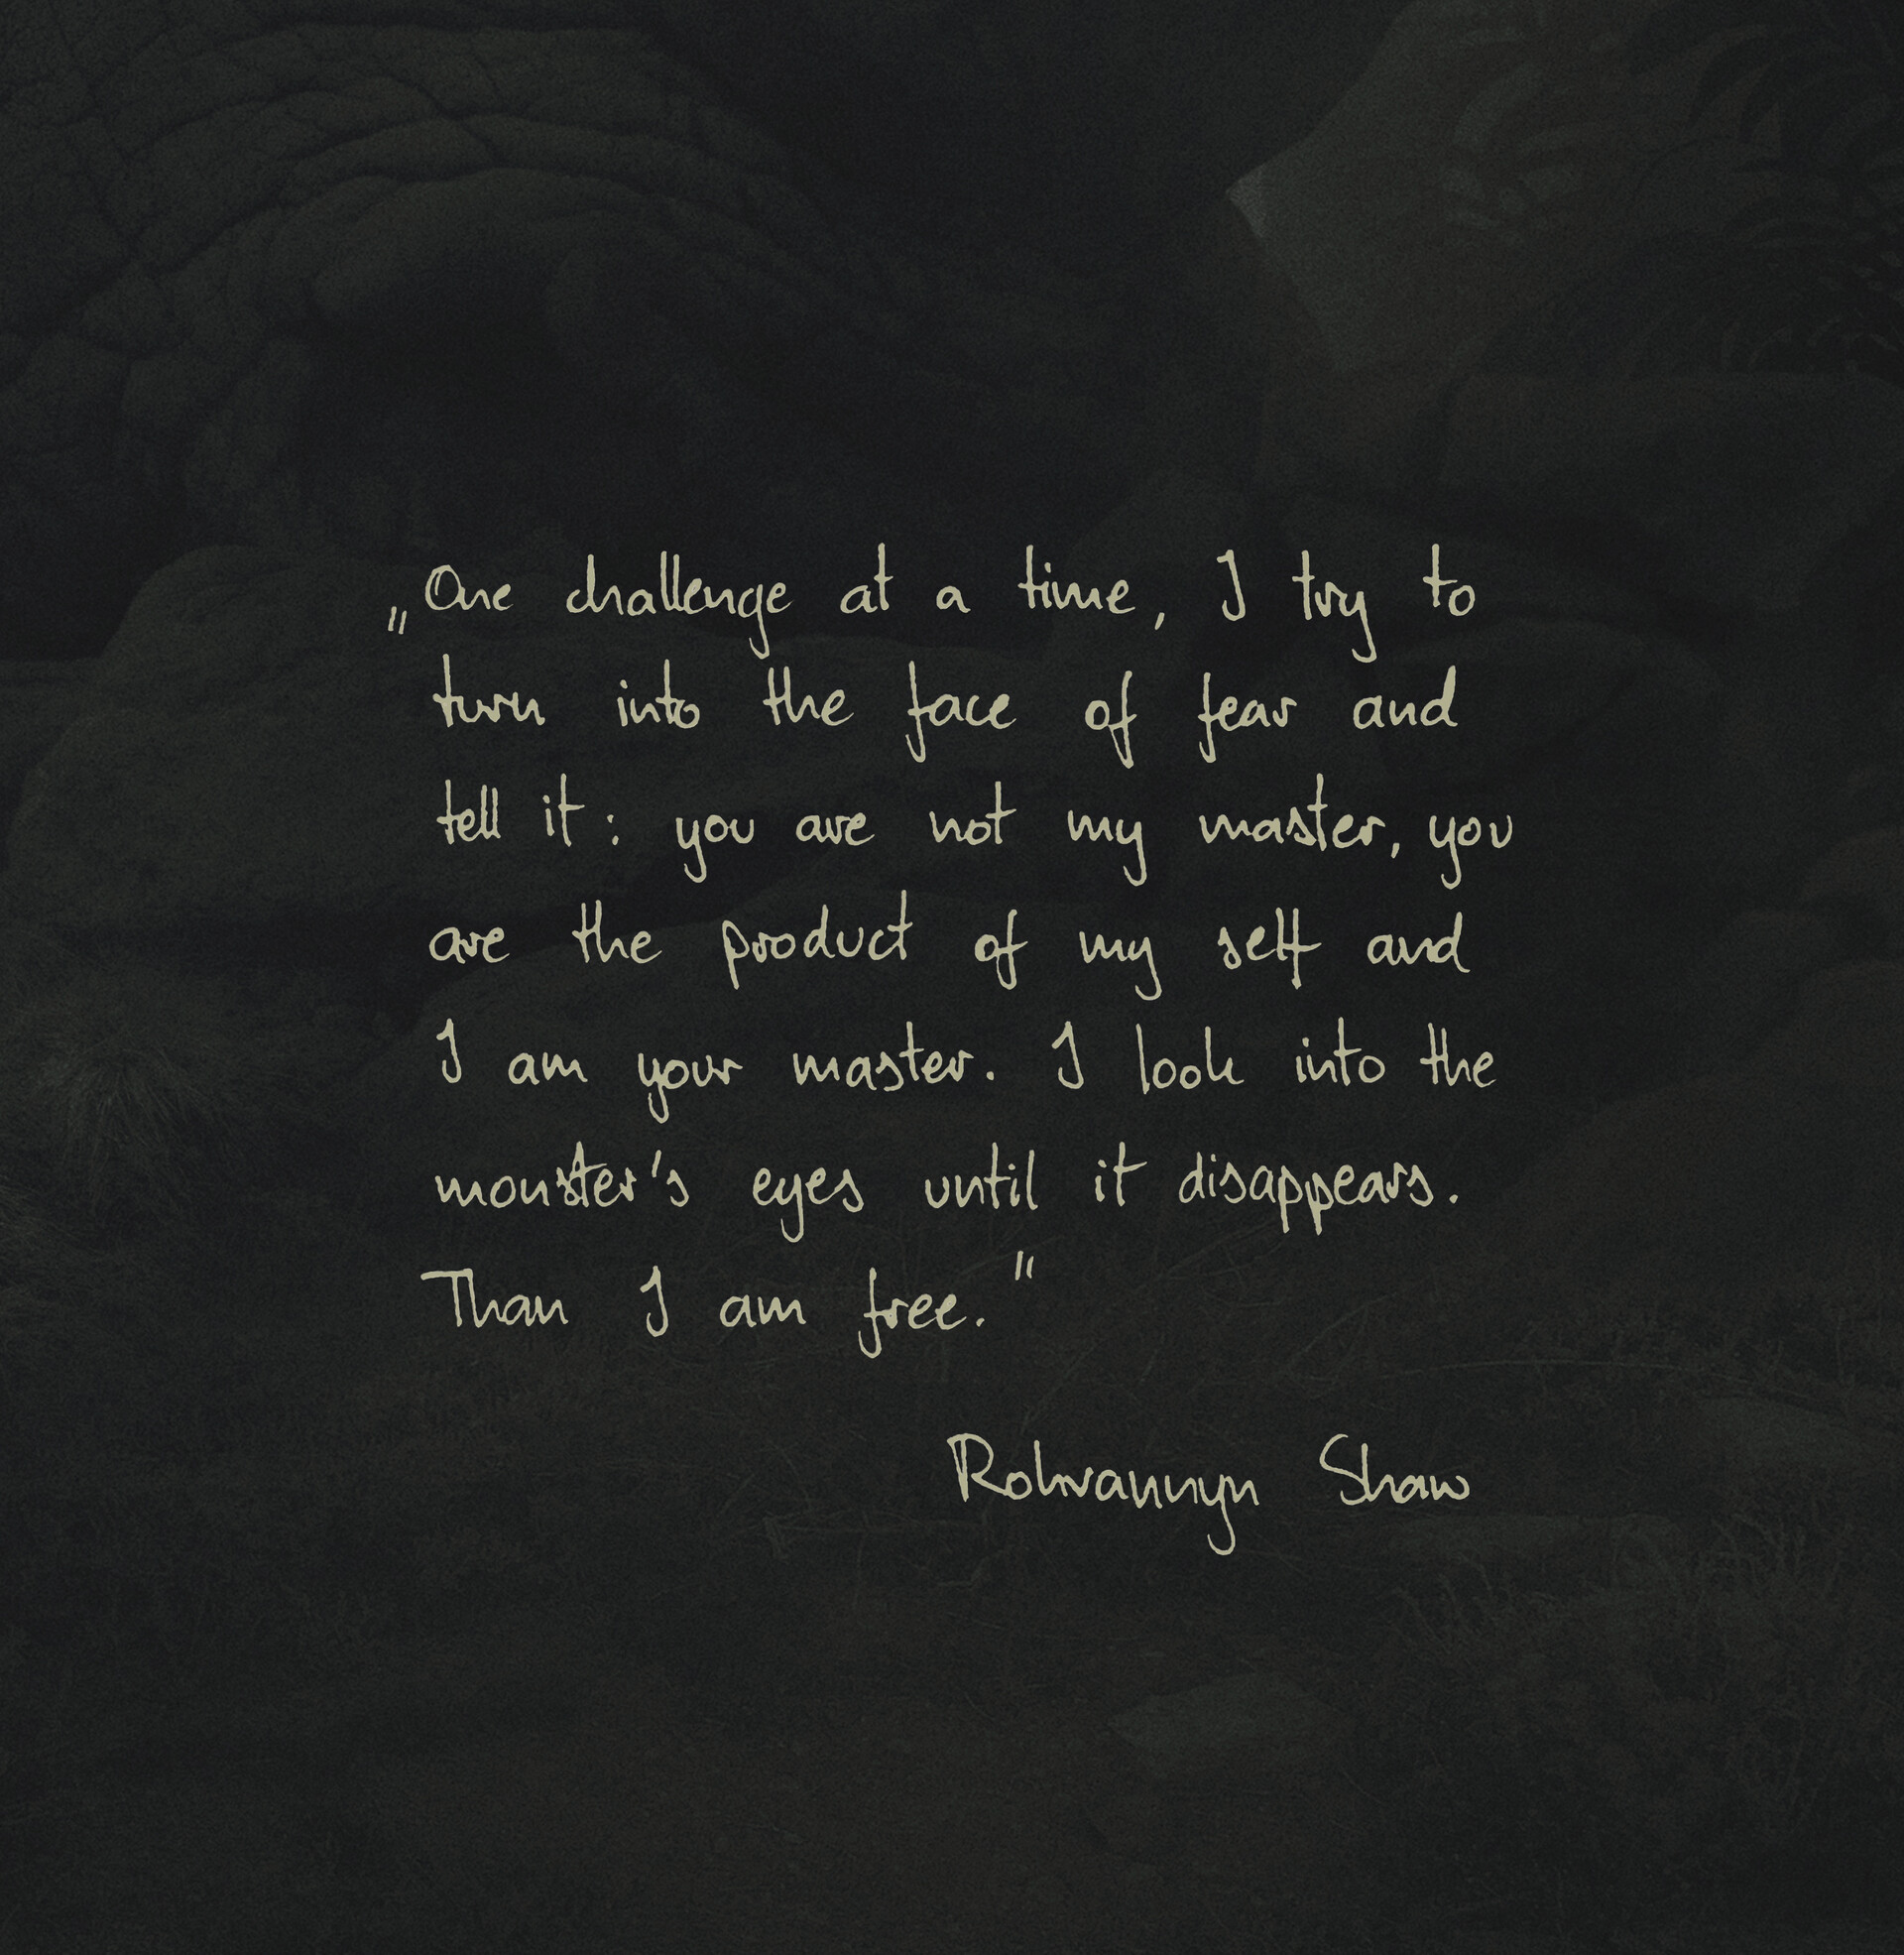 „One challenge at a time, I try to
turn into the face of fear and
tell it: you are not my master, you
are the product of my self and
I am your master. I look into the
monster's eyes until it disappears.
Than I am free."
Rohvannyn Shaw